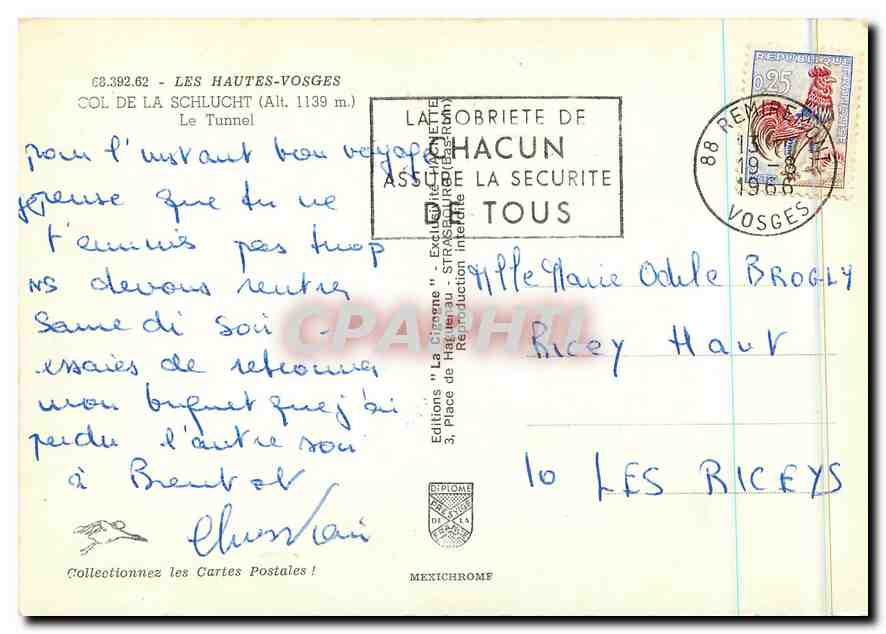 68.392.62 - LES HAUTES-VOSGES
COL DE LA SCHLUCHT (Alt. 1139 m.)
Le Tunnel
pour l'instant bon voyage
j'epense que tu ne
t'ennuis pas trop
NS devons rentrer
Same di soir
essaies de retrouver
mon briquet que j'ai
perdu l'autre soir
à
Christian
Collectionnez les Cartes Postales !
Editions "La Cigogne" - Exclusivité HACHETTE
3, Place de Haguenau - STRASBOURG (Bas-Rhin)
Reproduction interdite
DIPLOME
PRESTIGE
DE LA
FRANCE
MEXICHROME
LA SOBRIETE DE
CHACUN
ASSURE LA SECURITE
DE TOUS
88 REMIREMONT
13
19 - 8
1966
VOSGES
REPUBLIQUE
FRANÇAISE
0,25
Mlle Marie Odile BROGLY
RICEY HAUT
10 LES RICEYS
CPARHTL